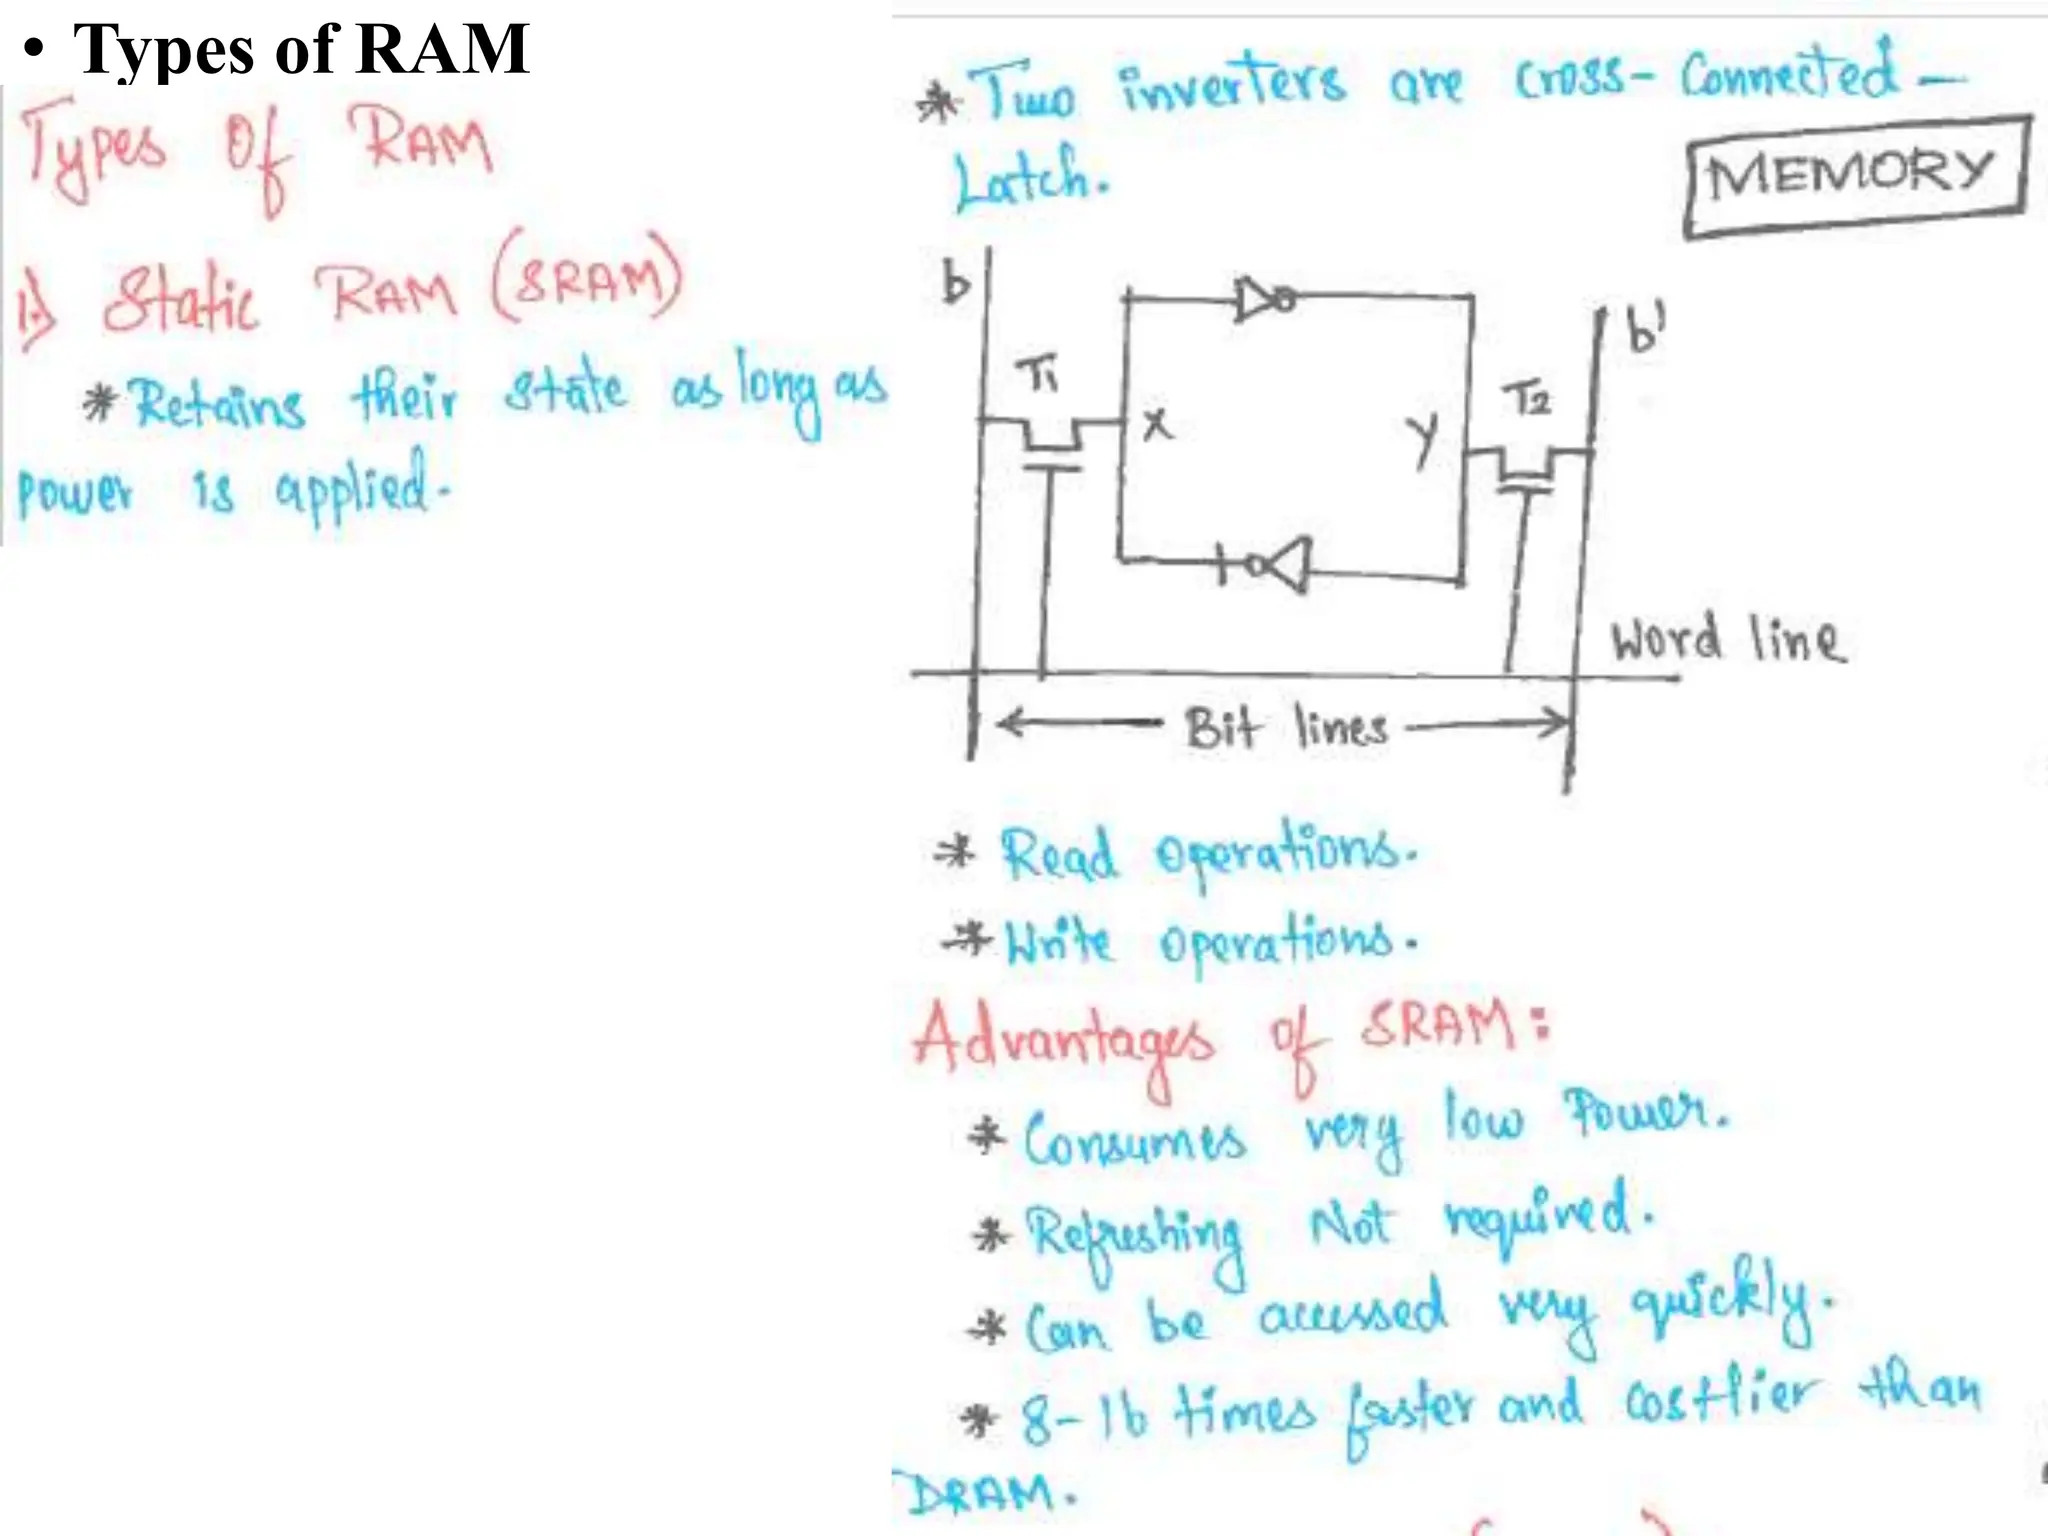 • Types of RAM
Types Of RAM
1.) Static RAM (SRAM)
* Retains their state as long as
power is applied.
* Two inverters are cross-connected -
Latch.
MEMORY
b
b'
T1
T2
X
Y
Word line
Bit lines
* Read operations.
* Write operations.
Advantages of SRAM:
* Consumes very low Power.
* Refreshing Not required.
* Can be accessed very quickly.
* 8-16 times faster and costlier than
DRAM.